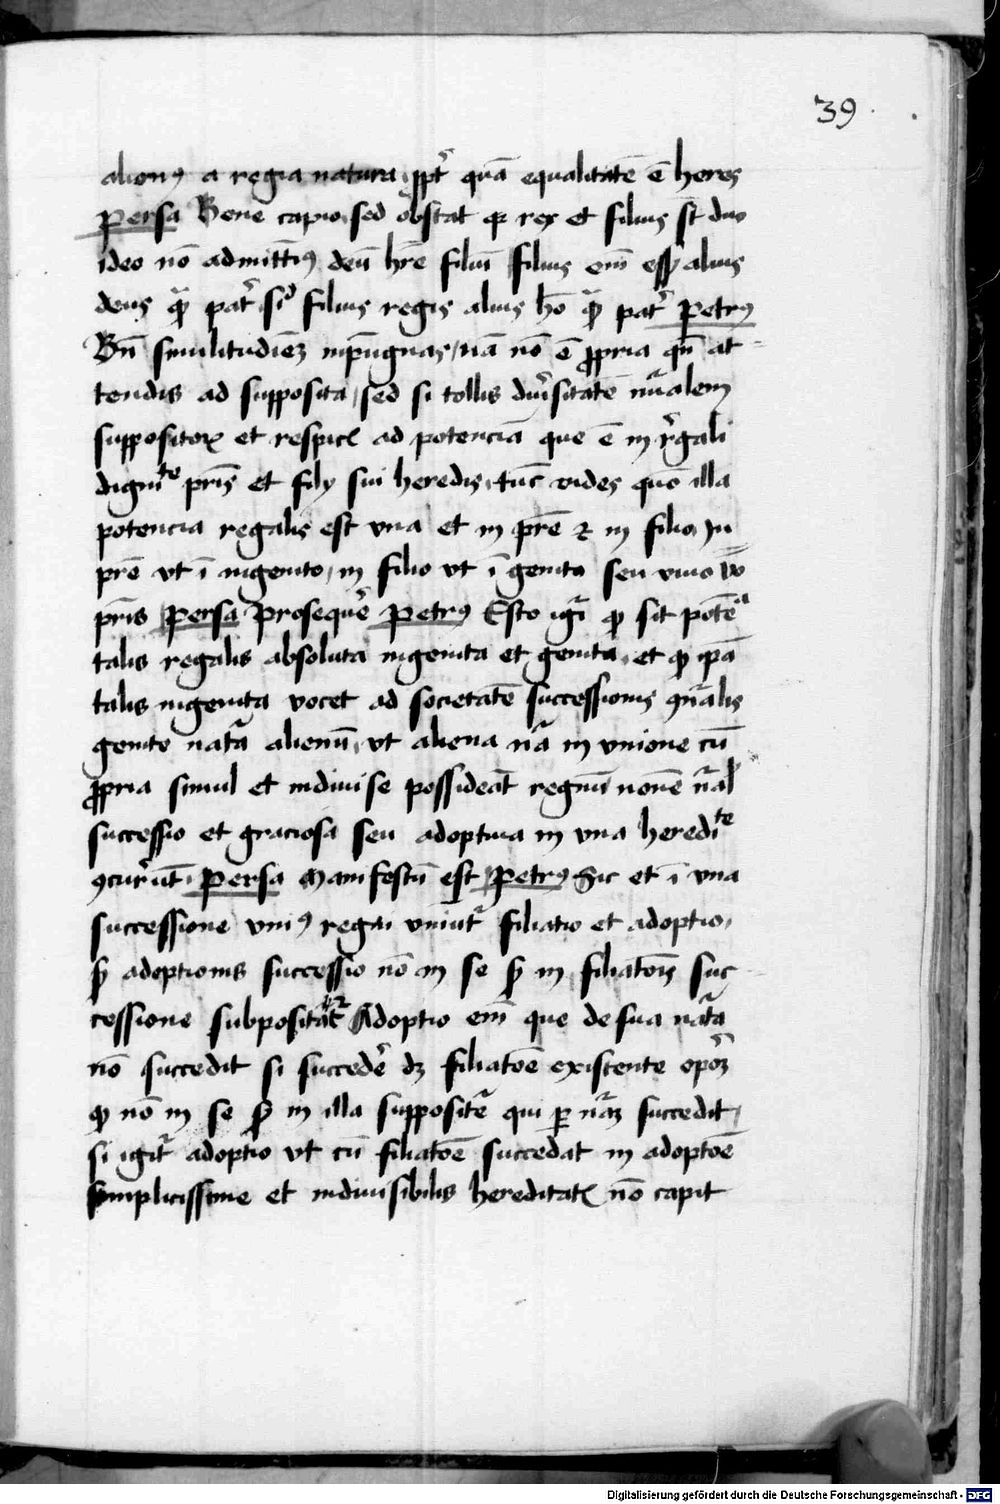 39
alienꝰ a regia natura ꝓpt̄ quā equalitatē ē heres
Persa Bene capio, sed obstat qꝛ rex et filius st̄ duo
ideo nō admittimꝰ deū hr̄e filiū filius em̄ esset alius
deus qͣ̄ pat̓ sic̄ filius regis alius hō qͣ̄ pat̓ Petrꝰ
Bn̄ similitudiēꝫ inpugnas, nā nō ē ꝓpria qn̄ at=
tendis ad supposita, sed si tollis div̓sitatē nūalem
suppositoꝝ et respicis ad potenciā que ē in r̓gali
dignite pr̄is et filij sui heredis, tūc vides quō illa
potencia regalis est vna et in pr̄e ⁊ in filio, in
pr̄e vt ī ingenito, in filio vt ī genita seu viuo v̄bo
pr̄is Persa Prosequer̓ Petrꝰ Esto igr̄ ꝙ sit potēa
talis regalis absoluta ingenita et genita, et ꝙ ip̄a
talis ingenita vocet ad societatē successionis ꝯn̄alis
genite natā alienū, vt aliena nā in vnione cū
ꝓpria simul et indiuise possideat regnū nōne nāl
successio et graciosa seu adoptiua in vna heredite
ꝯcurrūt, Persa Manifestū est Petrꝰ Sic et ī vna
successione vniꝰ regni vniūt̓ filiatio et adoptio,
sꝫ adoptionis successio nō in se sꝫ in filiatōis suc=
cessione subpositat̓ Adoptio em̄ que de sua natā
nō succedit si succeder̓ dꝫ filiatōe existente opōꝫ
ꝙ nō in se sꝫ in illa suppositet̓ qui ꝑ nāꝫ succedit,
si igit̓ adoptio vt cū filiatōe succedat in adoptōe
simplicissime et indiuisibilis hereditatis nō capit
Digitalisierung gefördert durch die Deutsche Forschungsgemeinschaft - DFG